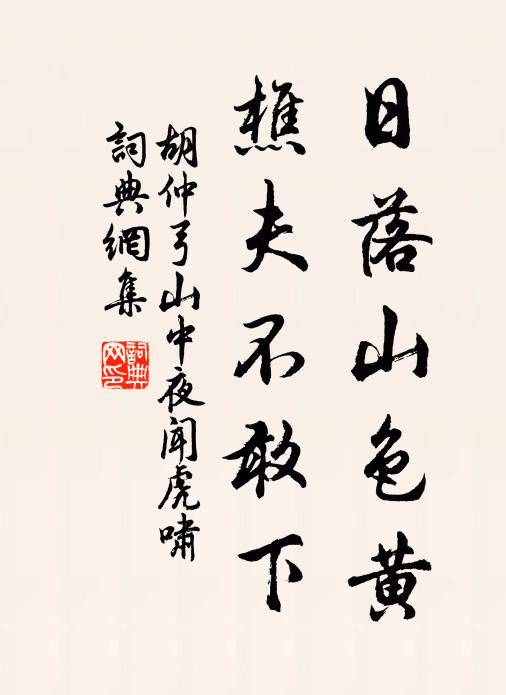 日落山色黄
樵夫不敢下
胡仲弓山中夜聞虎嘯
詞典網集
詞典
网印